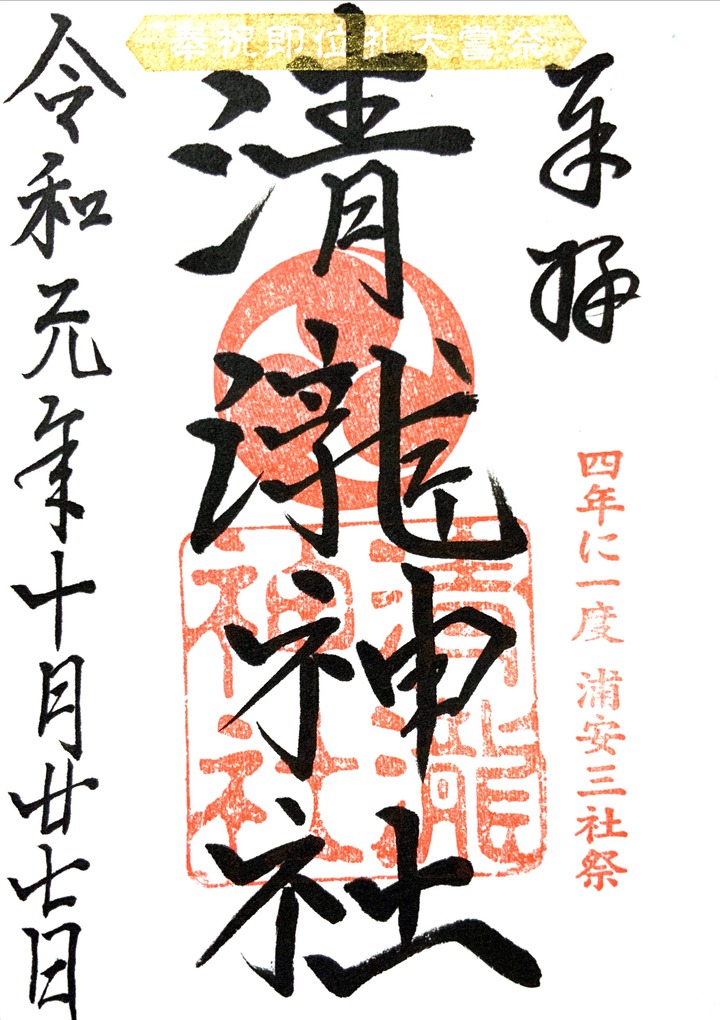 奉祝即位礼 大嘗祭
奉拝
四年に一度 浦安三社祭
清瀧神社
清瀧
神社
令和元年十月廿七日